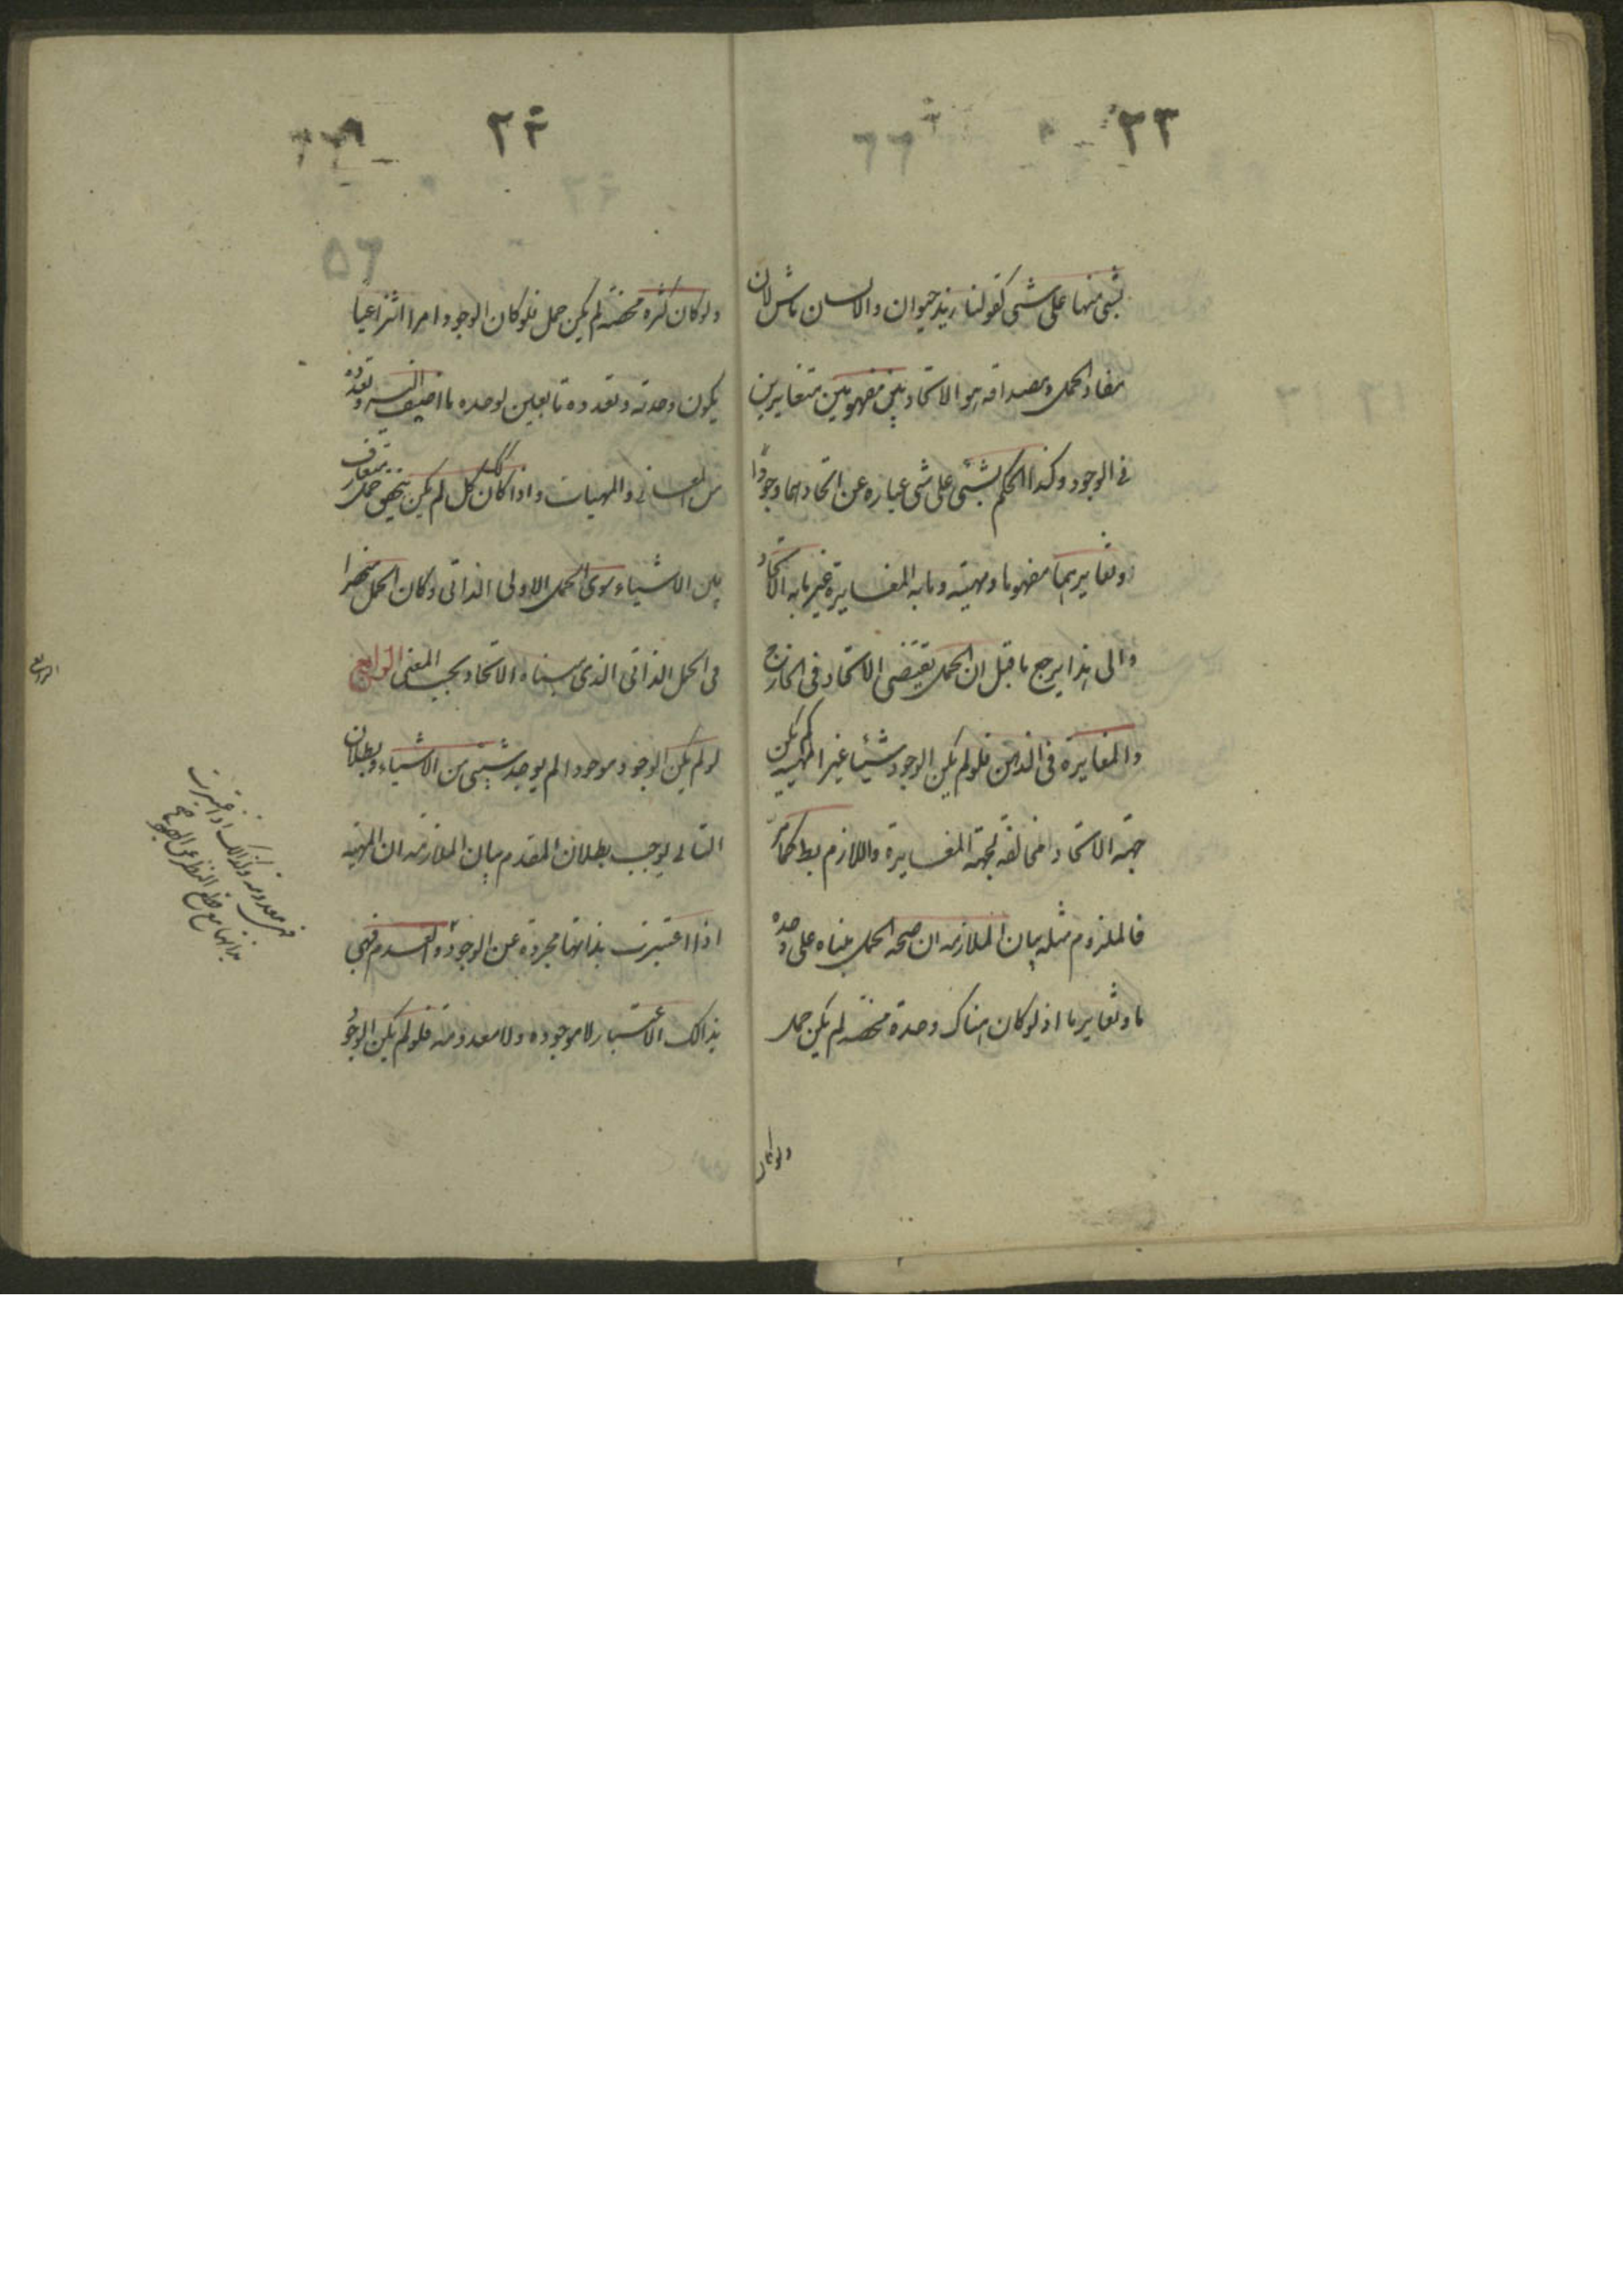 ٢٣
بشئ منها على شئ كقولنا زيد حيوان والانسان ماش لان
مفاد الحمل ومصداقه هو الاتحاد بين مفهومين متغايرين
في الوجود وكذا الحكم بشئ على شئ عباره عن اتحادهما وجودا
وتغايرهما مفهوما ومهية وما به المغايرة غير ما به الاتحاد
والى هذا يرجع ما قيل ان الحمل يقتضى الاتحاد فى الخارج
والمغايرة فى الذهن فلو لم يكن الوجود شيئا غير المهية لم يكن
جهة الاتحاد مخالفة لجهة المغايرة واللازم بط كما مر
فالملزوم مثله بيان الملازمه ان صحة الحمل مبناه على وحدة
ما وتغاير ما اذ لو كان هناك وحدة محضه لم يكن حمل
ولو كان
٢٤
٥٦
ولو كان كثره محضة لم يكن حمل فلو كان الوجود امرا انتزاعيا
يكون وحدته وتعدده تابعين لوحده ما اضيف اليه وتعدده
من المعانى والمهيات واذا كان كك لم يكن يتحقق حمل متعارف
بين الاشياء سوى الحمل الاولى الذاتى وكان الحمل منحصرا
فى الحمل الذاتى الذى مبناه الاتحاد بحسب المعنى الرابع
لو لم يكن الوجود موجودا لم يوجد شيئى من الاشياء وبطلان
التالى يوجب بطلان المقدم بيان الملازمه ان المهيه
اذا اعتبرت بذاتها مجردة عن الوجود والعدم فهى
بذالك الاعتبار لا موجوده ولا معدومة فلو لم يكن الوجود
الرابع
فهى معدومه وكذالك اذا اعتبرت
بذاتها مع قطع النظر عن الوجود